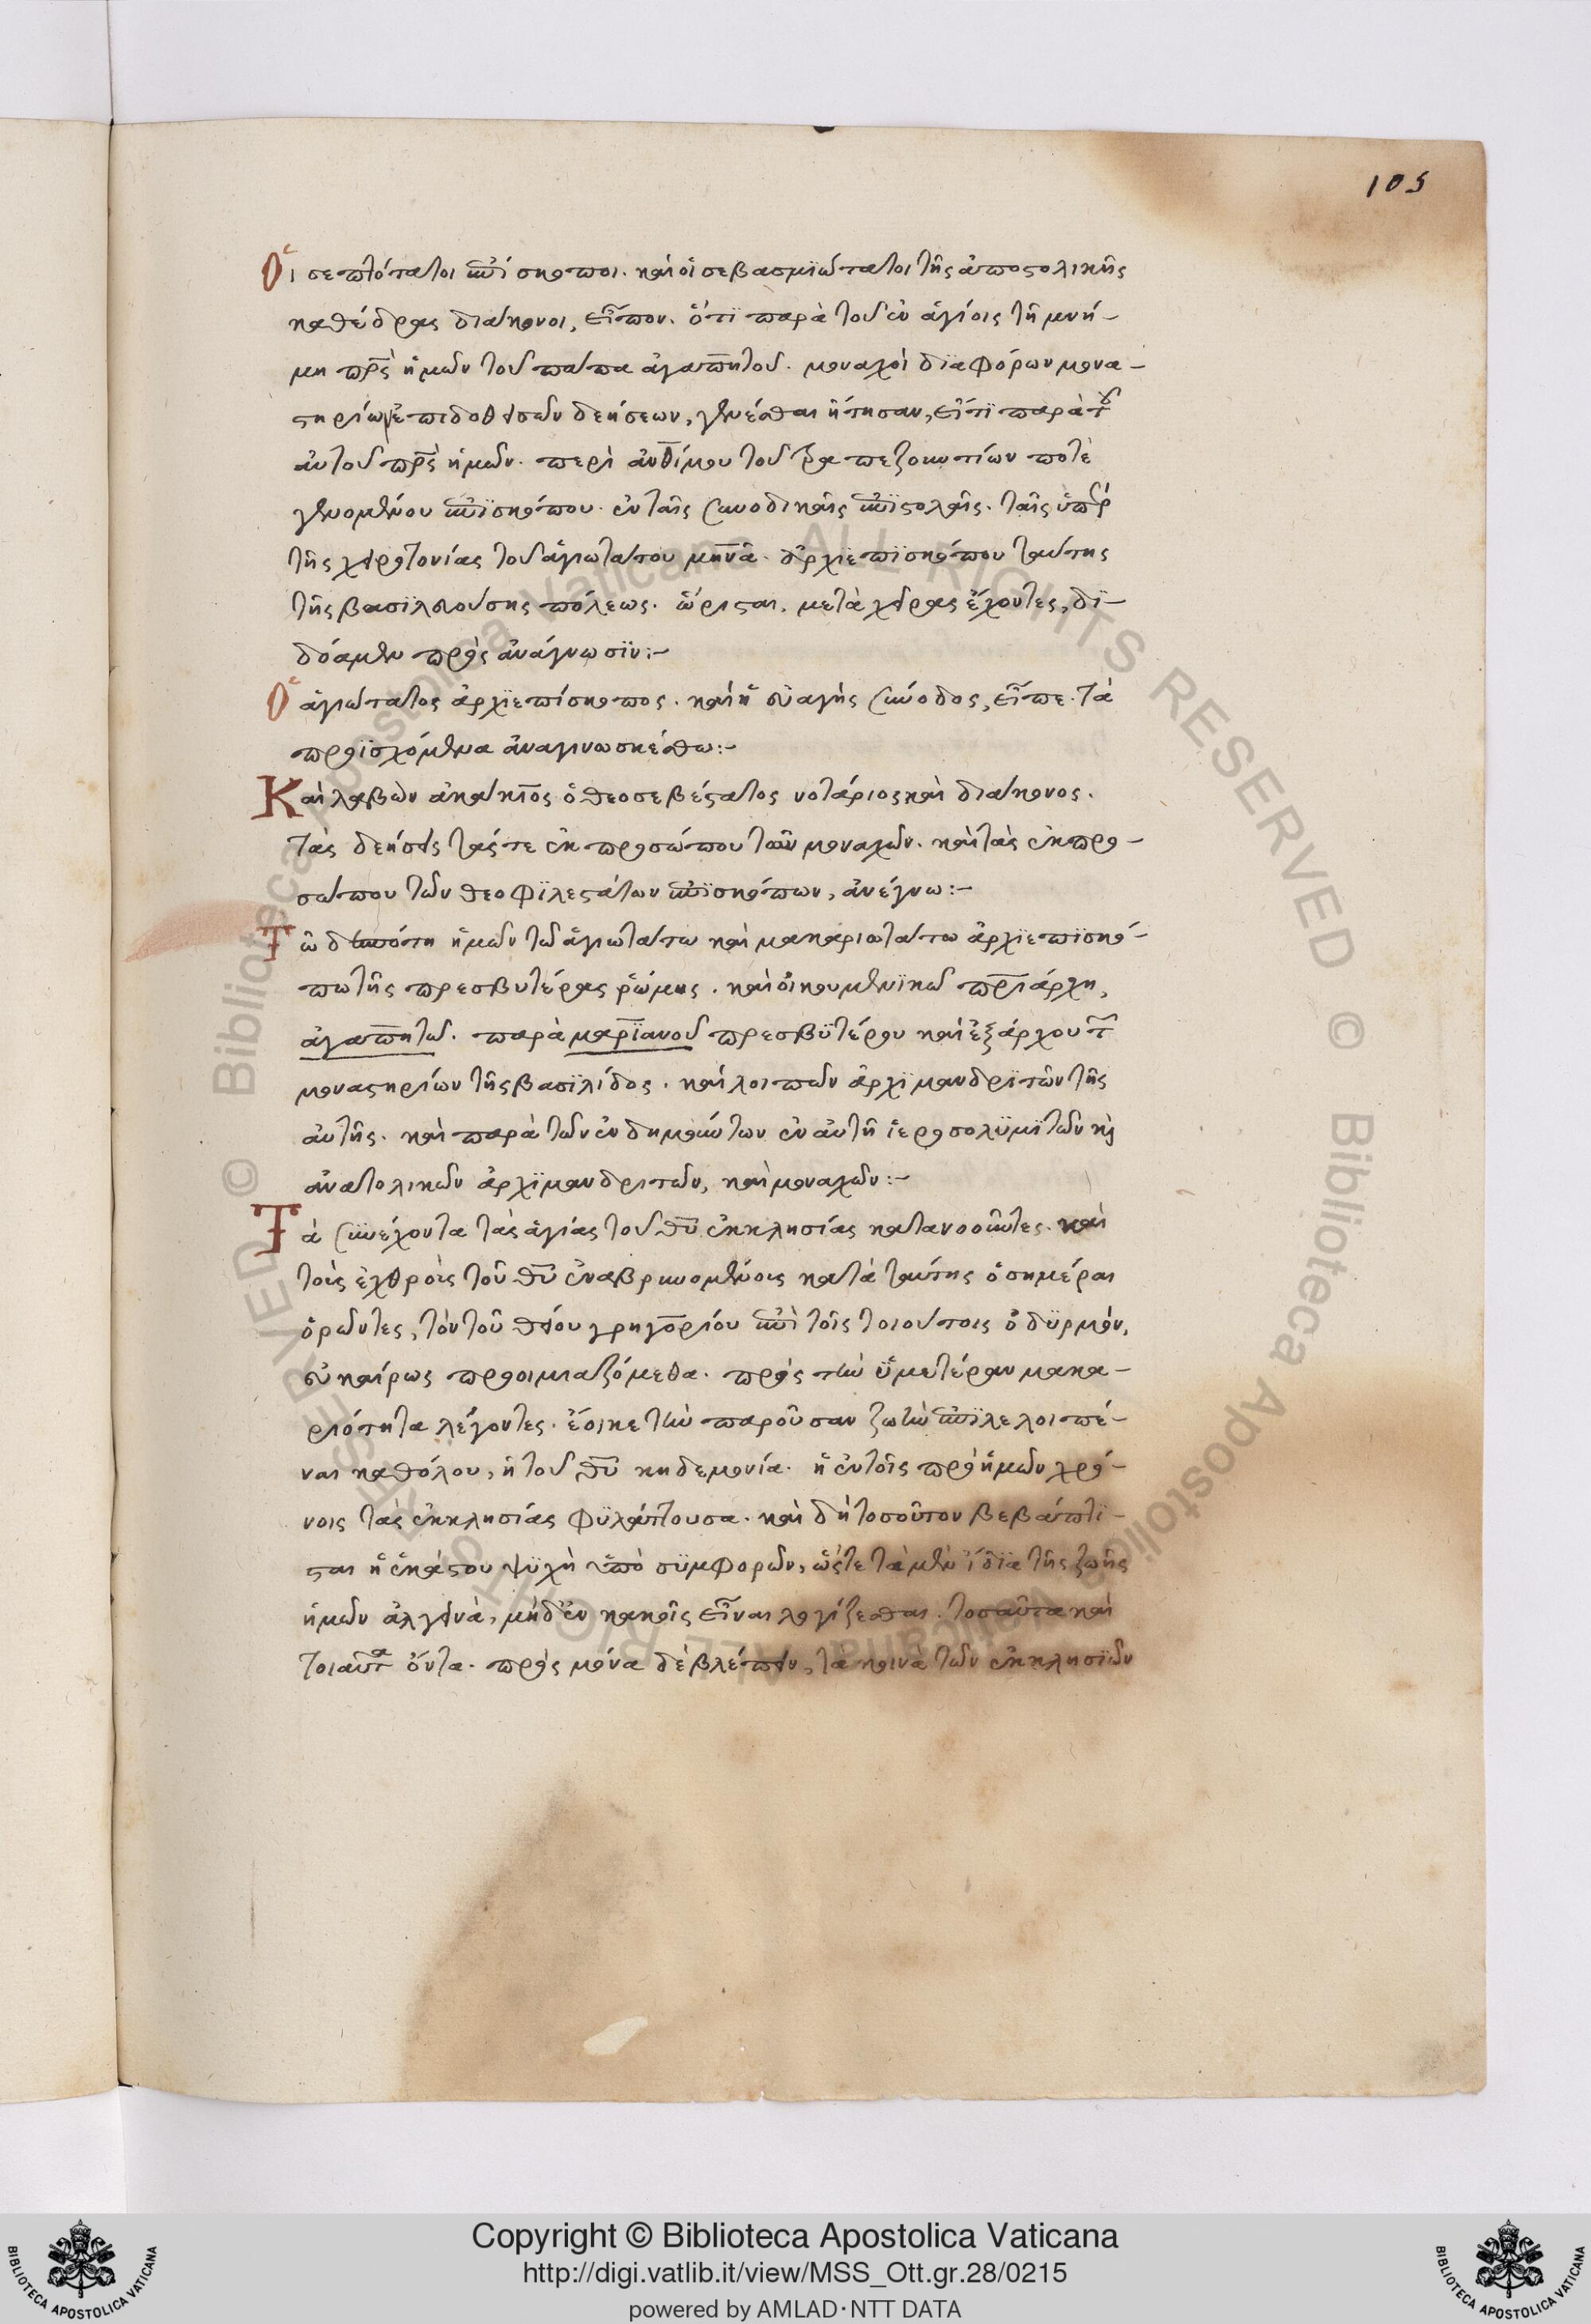 105
Οἱ σεπτότατοι ἐπίσκοποι. καὶ οἱ σεβασμιώτατοι τῆς ἀποστολικῆς
καθέδρας διάκονοι, εἶπον. ὅτι παρὰ τοῦ ἐν ἁγίοις τῇ μνή-
μῃ πρς ἡμῶν τοῦ πάπα ἀγαπητοῦ. μοναχοὶ διαφόρων μονα-
στηρίων ἐπιδοθεισῶν δεήσεων, γενέσθαι ᾔτησαν, ἔτι παρὰ τοῦ
αὐτοῦ πρς ἡμῶν. περὶ ἀνθίμου τοῦ τραπεζουντίων ποτὲ
γενομένου ἐπισκόπου. ἐν ταῖς συνοδικαῖς ἐπιστολαῖς. ταῖς ὑπὲρ
τῆς χειροτονίας τοῦ ἁγιωτάτου μηνᾶ. ἀρχιεπισκόπου ταύτης
τῆς βασιλευούσης πόλεως. ὥρισται. μετὰ χεῖρας ἔχοντες, δί-
δόαμεν πρὸς ἀνάγνωσιν:-
Ὁ ἁγιώτατος ἀρχιεπίσκοπος. καὶ ἡ εὐαγὴς σύνοδος, εἶπε. τὰ
προϊσχόμενα ἀναγινωσκέσθω:-
Καὶ λαβὼν ἀκάκιος ὁ θεοσεβέστατος νοτάριος καὶ διάκονος.
τὰς δεήσεις τάς τε ἐκ προσώπου τῶν μοναχῶν. καὶ τὰς ἐκ προ-
σώπου τῶν θεοφιλεστάτων ἐπισκόπων, ἀνέγνω:-
Τῷ δεσπότῃ ἡμῶν τῷ ἁγιωτάτω καὶ μακαριωτάτω ἀρχιεπισκό-
πω τῆς πρεσβυτέρας ῥώμης. καὶ οἰκουμενικῷ πριάρχη,
ἀγαπητῷ. παρὰ μαριανοῦ πρεσβυτέρου καὶ ἐξάρχου τῶν
μοναστηρίων τῆς βασιλίδος. καὶ λοιπῶν ἀρχιμανδριτῶν τῆς
αὐτῆς. καὶ παρὰ τῶν ἐνδημούντων ἐν αὐτῇ ἱεροσολυμιτῶν κὶ
ἀνατολικῶν ἀρχιμανδριτῶν, καὶ μοναχῶν:-
Τὰ συνέχοντα τὰς ἁγίας τοῦ θυ ἐκκλησίας κατανοοῦντες. καὶ
τοὺς ἐχθροὺς τοῦ θυ ἐναβρυνομένους κατὰ ταύτης ὁσημέραι
ὁρῶντες, τὸν τοῦ θείου γρηγορίου ἐπὶ τοῖς τοιούτοις ὀδυρμόν,
εὐκαίρως προοιμιαζόμεθα. πρὸς τὴν ὑμετέραν μακα-
ριότητα λέγοντες. ἔοικε τὴν παροῦσαν ζωὴν ἐπιλελοιπέ-
ναι καθόλου, ἡ τοῦ θυ κηδεμονία. ἡ ἐν τοῖς πρὸ ἡμῶν χρό-
νοις τὰς ἐκκλησίας φυλάττουσα. καὶ δὴ τοσοῦτον βεβάπτι-
σται ἡ ἑκάστου ψυχὴ ὑπὸ συμφορῶν, ὥστε τὰ μὲν ἴδια τῆς ζωῆς
ἡμῶν ἀλγεινὰ, μηδ' ἐν κακοῖς εἶναι λογίζεσθαι. τοσαῦτα καὶ
τοιαῦτα ὄντα. πρὸς μόνα δὲ βλέπειν, τὰ κοινὰ τῶν ἐκκλησιῶν
Copyright © Biblioteca Apostolica Vaticana
http://digi.vatlib.it/view/MSS_Ott.gr.28/0215
powered by AMLAD·NTT DATA